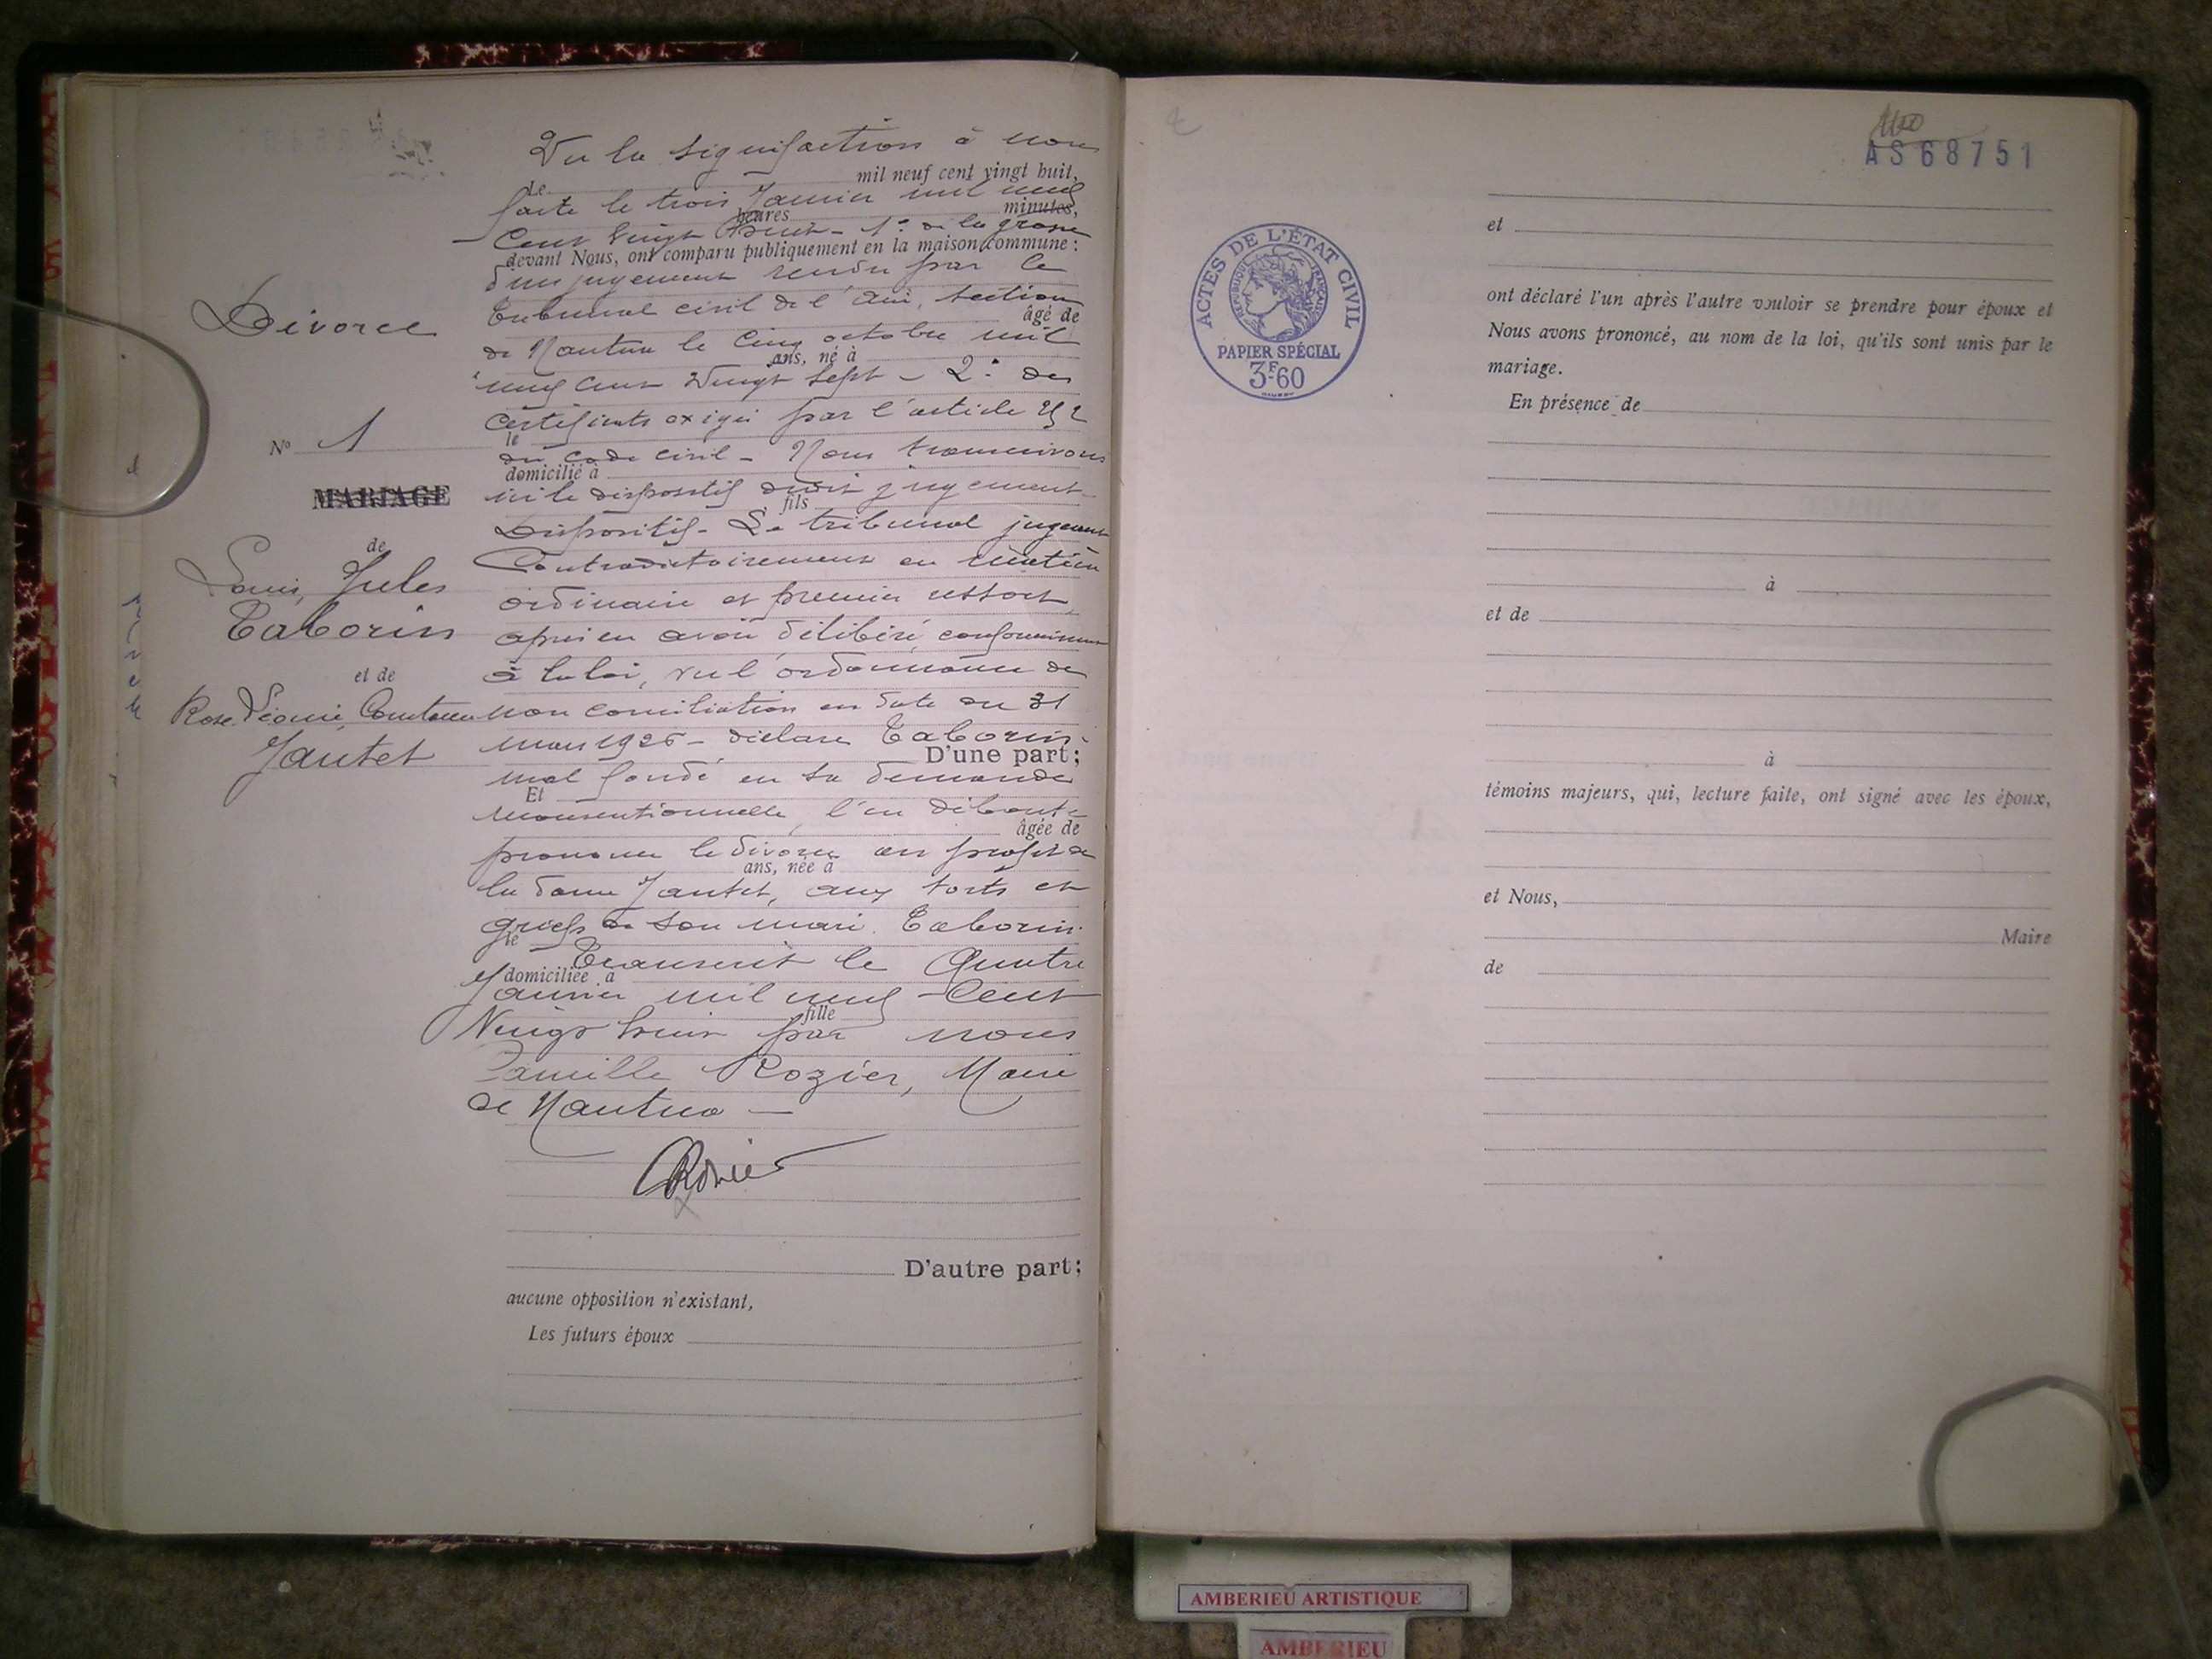 Divorce
No 1
MARIAGE
de
Louis, Jules
Taborin
et de
Rose Léonie, Constance
Jantet
Vu la signification à nous
Le mil neuf cent vingt huit,
faite le trois Janvier mil neuf
heures minutes,
Cent vingt huit - 1° de la grosse
devant Nous, ont comparu publiquement en la maison commune :
d'un jugement rendu par le
tribunal civil de l'Ain, section
âgé de
de Nantua le cinq octobre mil
ans, né à
neuf cent vingt sept - 2° des
certificats exigés par l'article 252
le
du code civil - Nous transcrivons
domicilié à
ici le dispositif dudit jugement
fils
Dispositif - Le tribunal jugeant
Contradictoirement en matière
ordinaire et premier ressort
après en avoir délibéré conformément
à la loi, vu l'ordonnance de
non conciliation en date du 31
mars 1926 - déclare Taborin
D'une part;
mal fondé en sa demande
Et
reconventionnelle, l'en déboute
âgée de
prononce le divorce au profit de
ans, née à
la dame Jantet, aux torts et
griefs de son mari Taborin.
le
Transcrit le Quatre
domiciliée à
Janvier mil neuf Cent
fille
Vingt huit par nous
Camille Rozier, Maire
de Nantua -
CRozier
D'autre part;
aucune opposition n'existant,
Les futurs époux
AS68751
ACTES DE L'ÉTAT CIVIL
RÉPUBLIQUE FRANÇAISE
PAPIER SPÉCIAL
3F60
et
ont déclaré l'un après l'autre vouloir se prendre pour époux et
Nous avons prononcé, au nom de la loi, qu'ils sont unis par le
mariage.
En présence de
à
et de
à
témoins majeurs, qui, lecture faite, ont signé avec les époux,
et Nous,
Maire
de
AMBERIEU ARTISTIQUE
AMBERIEU